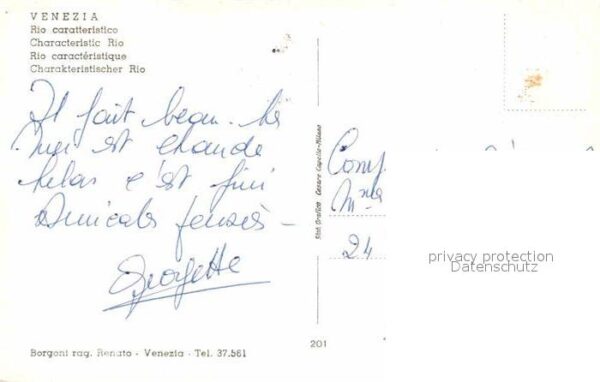 VENEZIA
Rio caratteristico
Characteristic Rio
Rio caractéristique
Charakteristischer Rio
Il fait beau. La
mer est chaude
helas c'est fini
Amicales pensées -
Georgette
Borgoni rag. Renato - Venezia - Tel. 37.561
Stab. Grafico Cesare Capello - Milano
201
Mme
24
privacy protection
Datenschutz